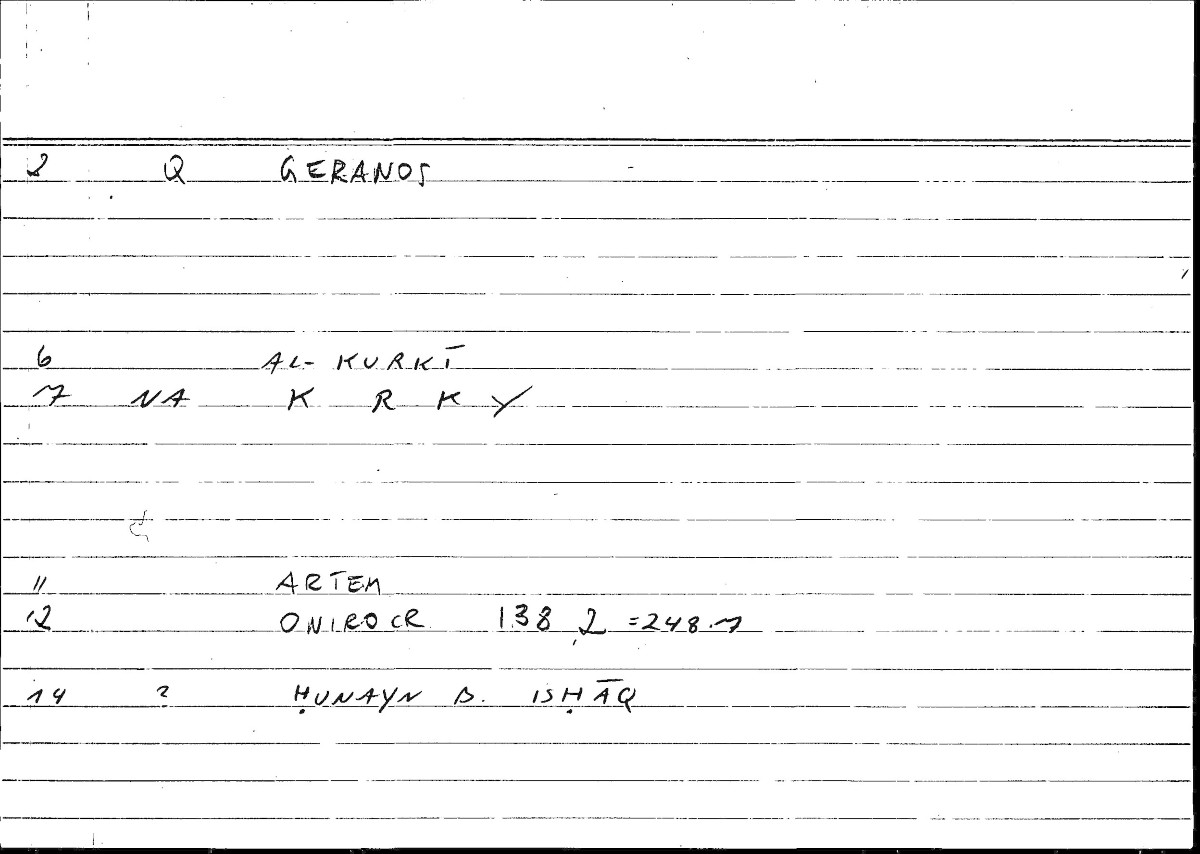 2 Q GERANOS
6 AL-KURKĪ
7 NA K R K Y
11 ARTEM
12 ONIROCR 138,2 =248.7
14 2 ḤUNAYN B. ISḤĀQ